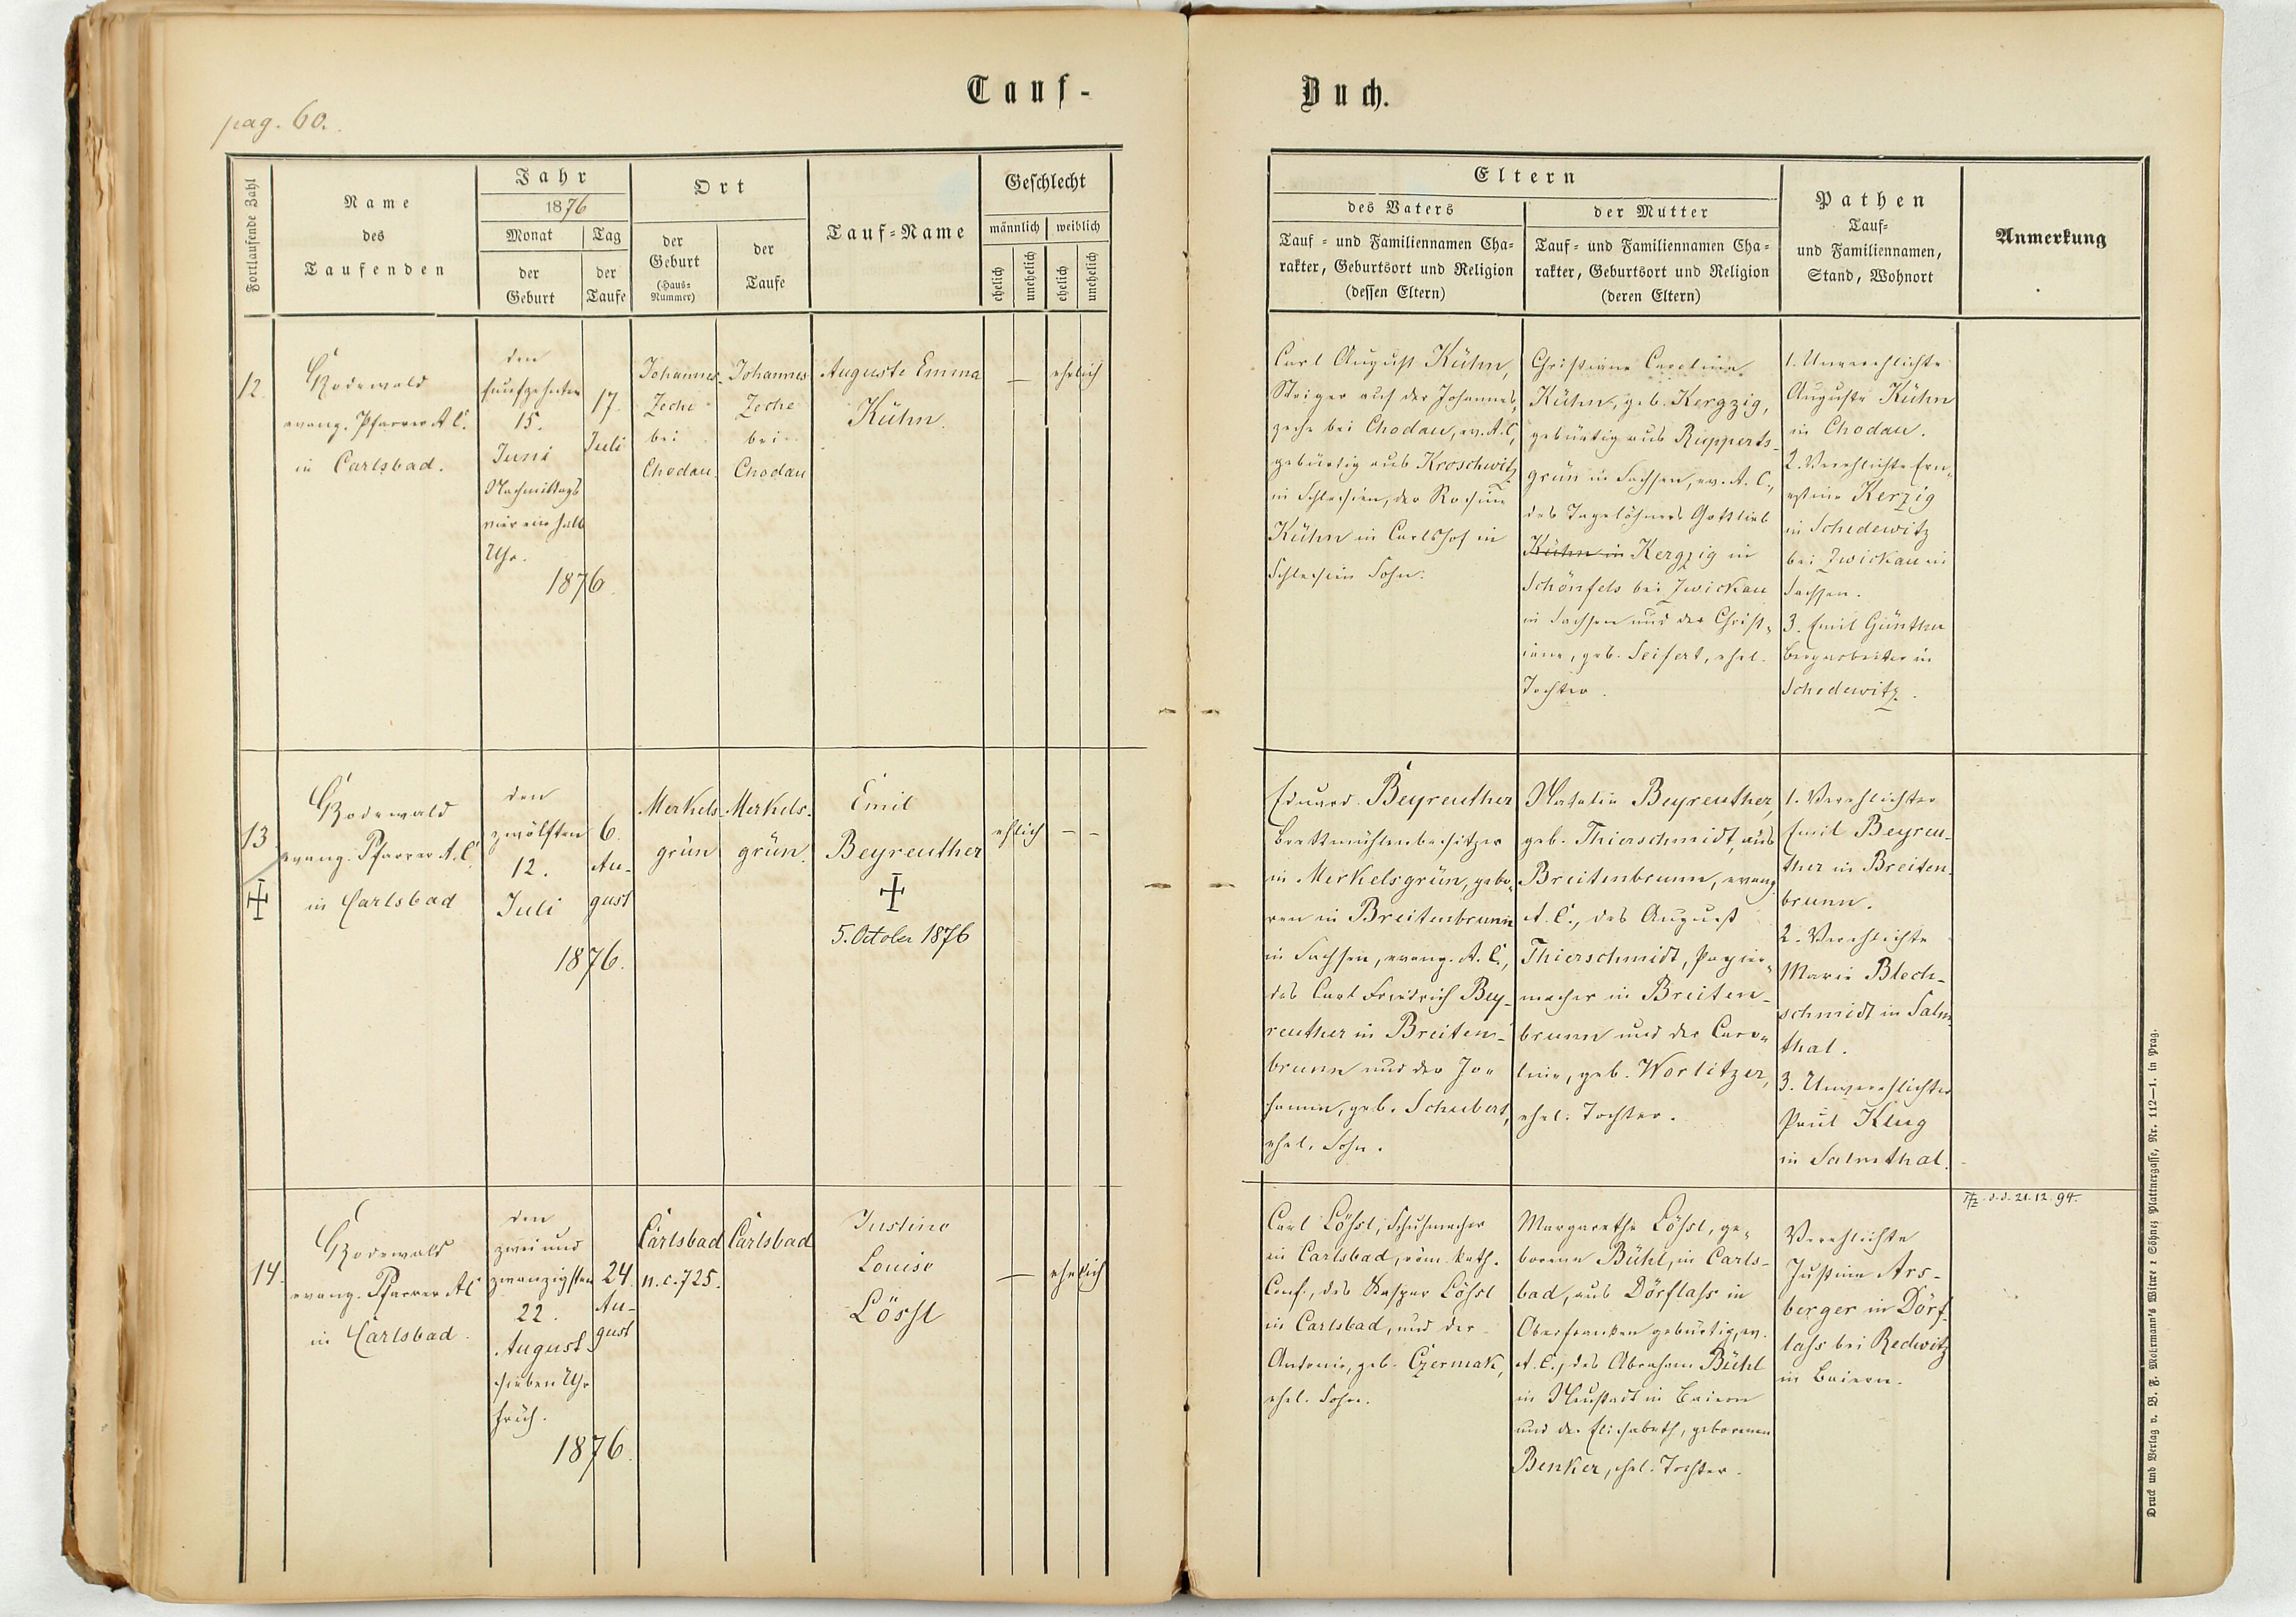 Tauf-
Buch.
pag. 60.
Fortlaufende Zahl
Name
des
Taufenden
Jahr
1876
Monat
der
Geburt
Tag
der
Taufe
Ort
der
Geburt
(Haus=
Nummer)
der
Taufe
Tauf=Name
Geschlecht
männlich
weiblich
ehelich
unehelich
ehelich
unehelich
Eltern
des Vaters
Tauf = und Familiennamen Cha=
rakter, Geburtsort und Religion
(dessen Eltern)
der Mutter
Tauf = und Familiennamen Cha=
rakter, Geburtsort und Religion
(deren Eltern)
Pathen
Tauf=
und Familiennamen,
Stand, Wohnort
Anmerkung
12.
Rodewald
evang. Pfarrer A C.
in Carlsbad.
den
funfzehnten
15.
Juni
Nachmittags
vier ein halb
Uhr.
1876.
17.
Juli
Johannes-
Zeche
bei
Chodau.
Johannes
Zeche
bei
Chodau
Auguste Emma
Kühn.
—
ehelich
Carl August Kühn,
Steiger auf der Johannes,
zeche bei Chodau, ev. A. C.,
gebürtig aus Kroschwitz
in Schlesien, der Rosina
Kühn in Carlshof in
Schlesien Sohn.
Christiane Caroline
Kühn, geb. Kergzig,
gebürtig aus Rupperts-
grün in Sachsen, ev. A. C.,
des Tagelöhners Gottlieb
Kühn in Kergzig in
Schönfels bei Zwickau
in Sachsen und der Christ-
iane, geb. Seifert, ehel.
Tochter.
1. Unverehlichte
Auguste Kühn
in Chodau.
2. Verehlichte Ern-
estine Kerzig
in Schedewitz
bei Zwickau in
Sachsen.
3. Emil Günther
Bergarbeiter in
Schedewitz.
13
Rodewald
evang. Pfarrer A. C.
in Carlsbad
den
zwölften
12.
Juli
1876.
6.
Au-
gust
Merkels-
grün
Merkels-
grün.
Emil
Beyreuther
5. October 1876
ehlich
— -
Eduard Beyreuther
Brettmühlenbesitzer
in Merkelsgrün, gebo-
ren in Breitenbrunn
in Sachsen, evang. A. C.,
des Carl Friedrich Bey-
reuther in Breiten-
brunn und der Jo-
hanna, geb. Schubert,
ehel. Sohn.
Natalie Beyreuther,
geb. Thierschmidt, aus
Breitenbrunn, evang.
A. C., des August
Thierschmidt, Papier-
macher in Breiten-
brunn und der Caro-
line, geb. Worlitzer,
ehel. Tochter.
1. Verehlichter
Emil Beyreu-
ther in Breiten-
brunn.
2. Verehlichte
Marie Blech-
schmidt in Salm-
thal.
3. Unverehlichter
Paul Klug
in Salmthal.
14.
Rodewald
evang. Pfarrer AC
in Carlsbad.
den
zwei und
zwanzigsten
22.
August
sieben Uhr
früh.
1876.
24.
Au-
gust
Carlsbad
n. c. 725.
Carlsbad
Justine
Louise
Lössl
—
ehelich
Carl Lößl, Schuhmacher
in Carlsbad, röm. kath.
Conf., des Kaspar Lößl
in Carlsbad, und der
Antonie, geb. Czermak,
ehel. Sohn.
Margarethe Lößl, ge-
borene Bühl, in Carls-
bad, aus Dörflass in
Oberfranken gebürtig, ev.
A. C., des Abraham Bühl
in Neustadt in Baiern
und der Elisabeth, geborenen
Benker, ehel. Tochter.
Verehlichte
Justine Ars-
berger in Dörf-
lass bei Redwitz
in Baiern.
d. d. 21. 12. 94.
Druck und Verlag v. B. F. Mohrmann's Witwe & Söhne, Plattnergasse, Nr. 112—1. in Prag.